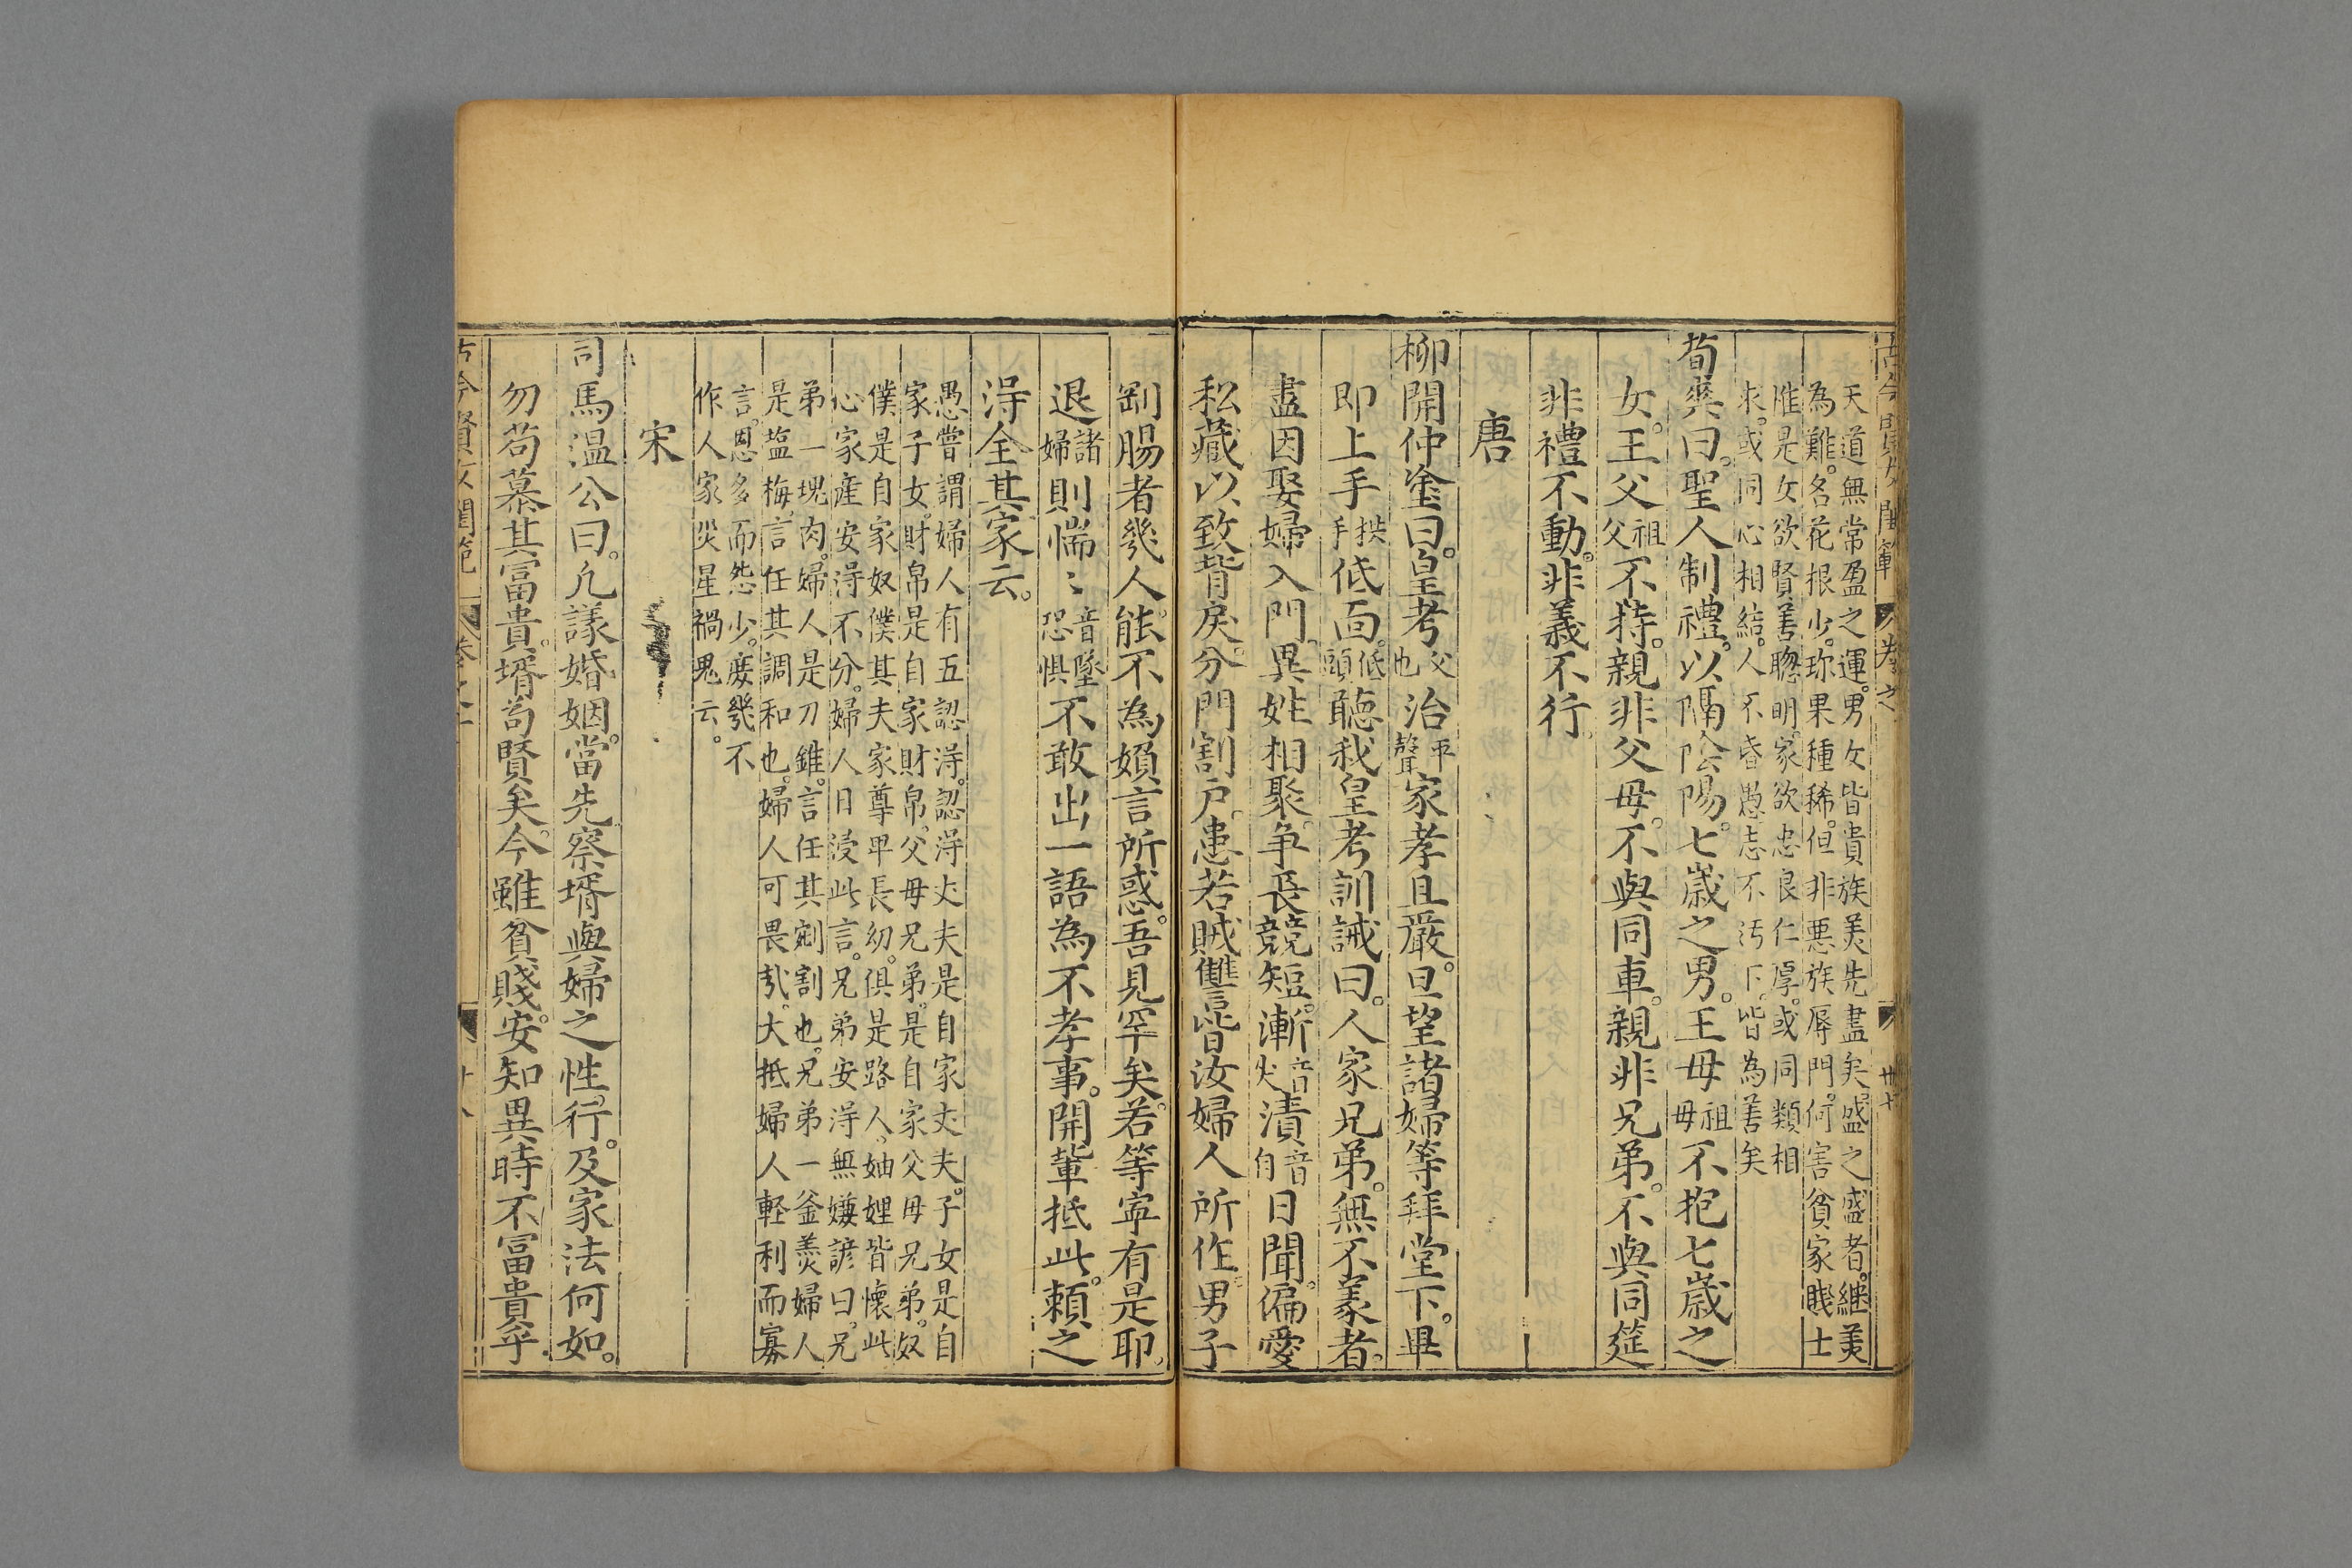 天道無常盈之運。男女皆貴族美先盡矣。盛之盛者。継美
為難。名花根少。珎果種稀。但非悪族辱門。何害貧家賤士
惟是女欲賢善聰明。家欲忠良仁厚。或同類相
求。或同心相結。人不昏愚志不汚下。皆為善矣
荀爽曰。聖人制禮。以隔陰陽。七歲之男。王毋祖毋不抱七歲之
女。王父祖父不持。親非父毋。不與同車。親非兄弟。不與同筵
非禮不動。非義不行
唐
柳開仲塗曰。皇考父也治平聲家孝且嚴。旦望諸婦等拜堂下。畢
即上手拱手低面。低頭聽我皇考訓誡曰。人家兄弟。無不義者。
盡因娶婦入門。異姓相聚。爭長競短。漸音尖漬音自日聞。偏愛
私藏以致背戾。分門割戶。患若賊讐皆汝婦人所作。男子
剛腸者幾人。能不為婦言所惑。吾見罕矣。若等寧有是耶。
退諸婦則惴〻音墜恐惧不敢出一語為不孝事。開輩抵此。賴之
得全其家云。
愚嘗謂婦人有五認得。認得丈夫是自家丈夫。子女是自
家子女。財帛是自家財帛。父母兄弟。是自家父母兄弟。奴
僕是自家奴僕其夫家尊卑長幼。俱是路人。妯娌皆懷此
心家產安得不分。婦人日浸此言。兄弟安得無嫌諺曰。兄
弟一塊肉。婦人是刀錐。言任其剜割也。兄弟一釜羹婦人
是塩梅。言任其調和也。婦人可畏哉。大抵婦人軽利而寡
言。恩多而怨少。庶幾不
作人家災星禍鬼云。
宋
司馬温公曰。凢議婚姻。當先察壻與婦之性。行。及家法何如。
勿苟慕其冨貴。壻苟賢矣。今雖貧賤。安知異時不冨貴乎。
古今賢女閨範 卷之二